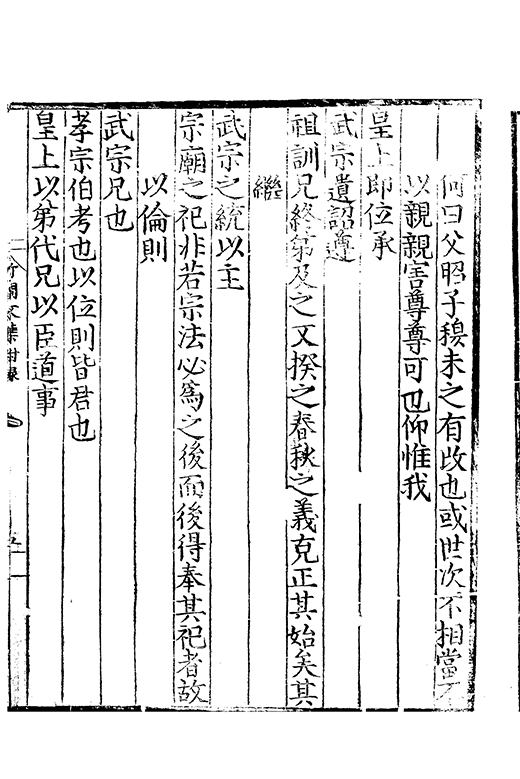 何曰父昭子穆未之有改也或世次不相當不
以親親害尊尊可也仰惟我
皇上即位承
武宗遺詔遵
祖訓兄終弟及之文揆之春秋之義克正其始矣其
繼
武宗之統以主
宗廟之祀非若宗法必爲之後而後得奉其祀者故
以倫則
武宗兄也
孝宗伯考也以位則皆君也
皇上以弟代兄以臣道事
竹澗文集附錄